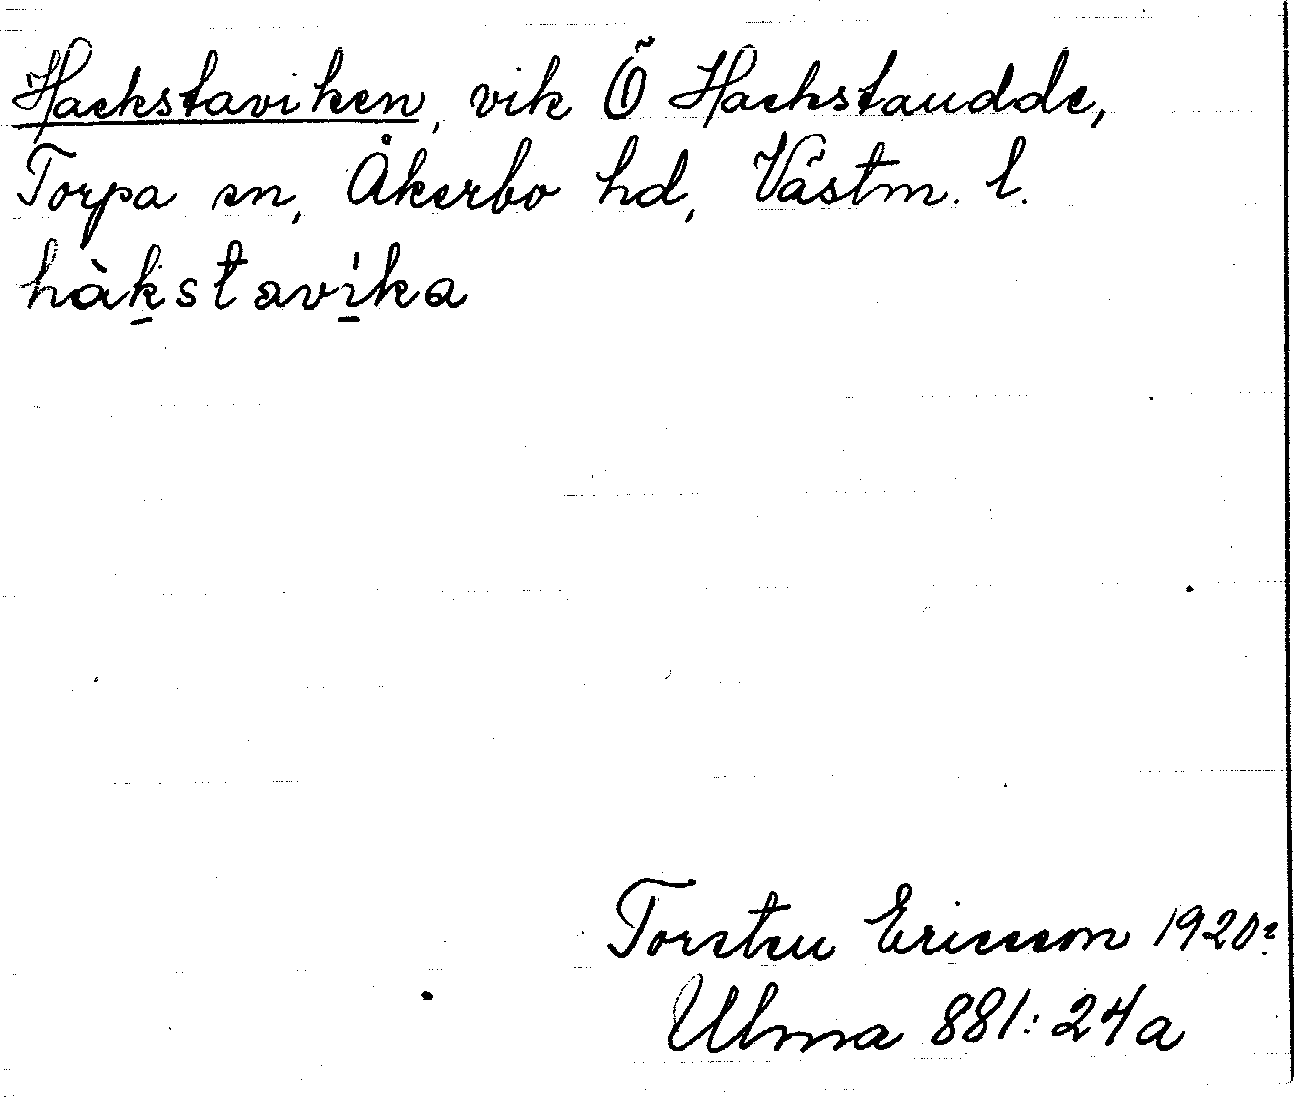 Hackstaviken, vik Ö Hackstaudde,
Torpa sn, Åkerbo hd, Västm. l.
hàk̠stavi̠̍ka
Torsten Ericsson 1920?
Ulma 881:24a